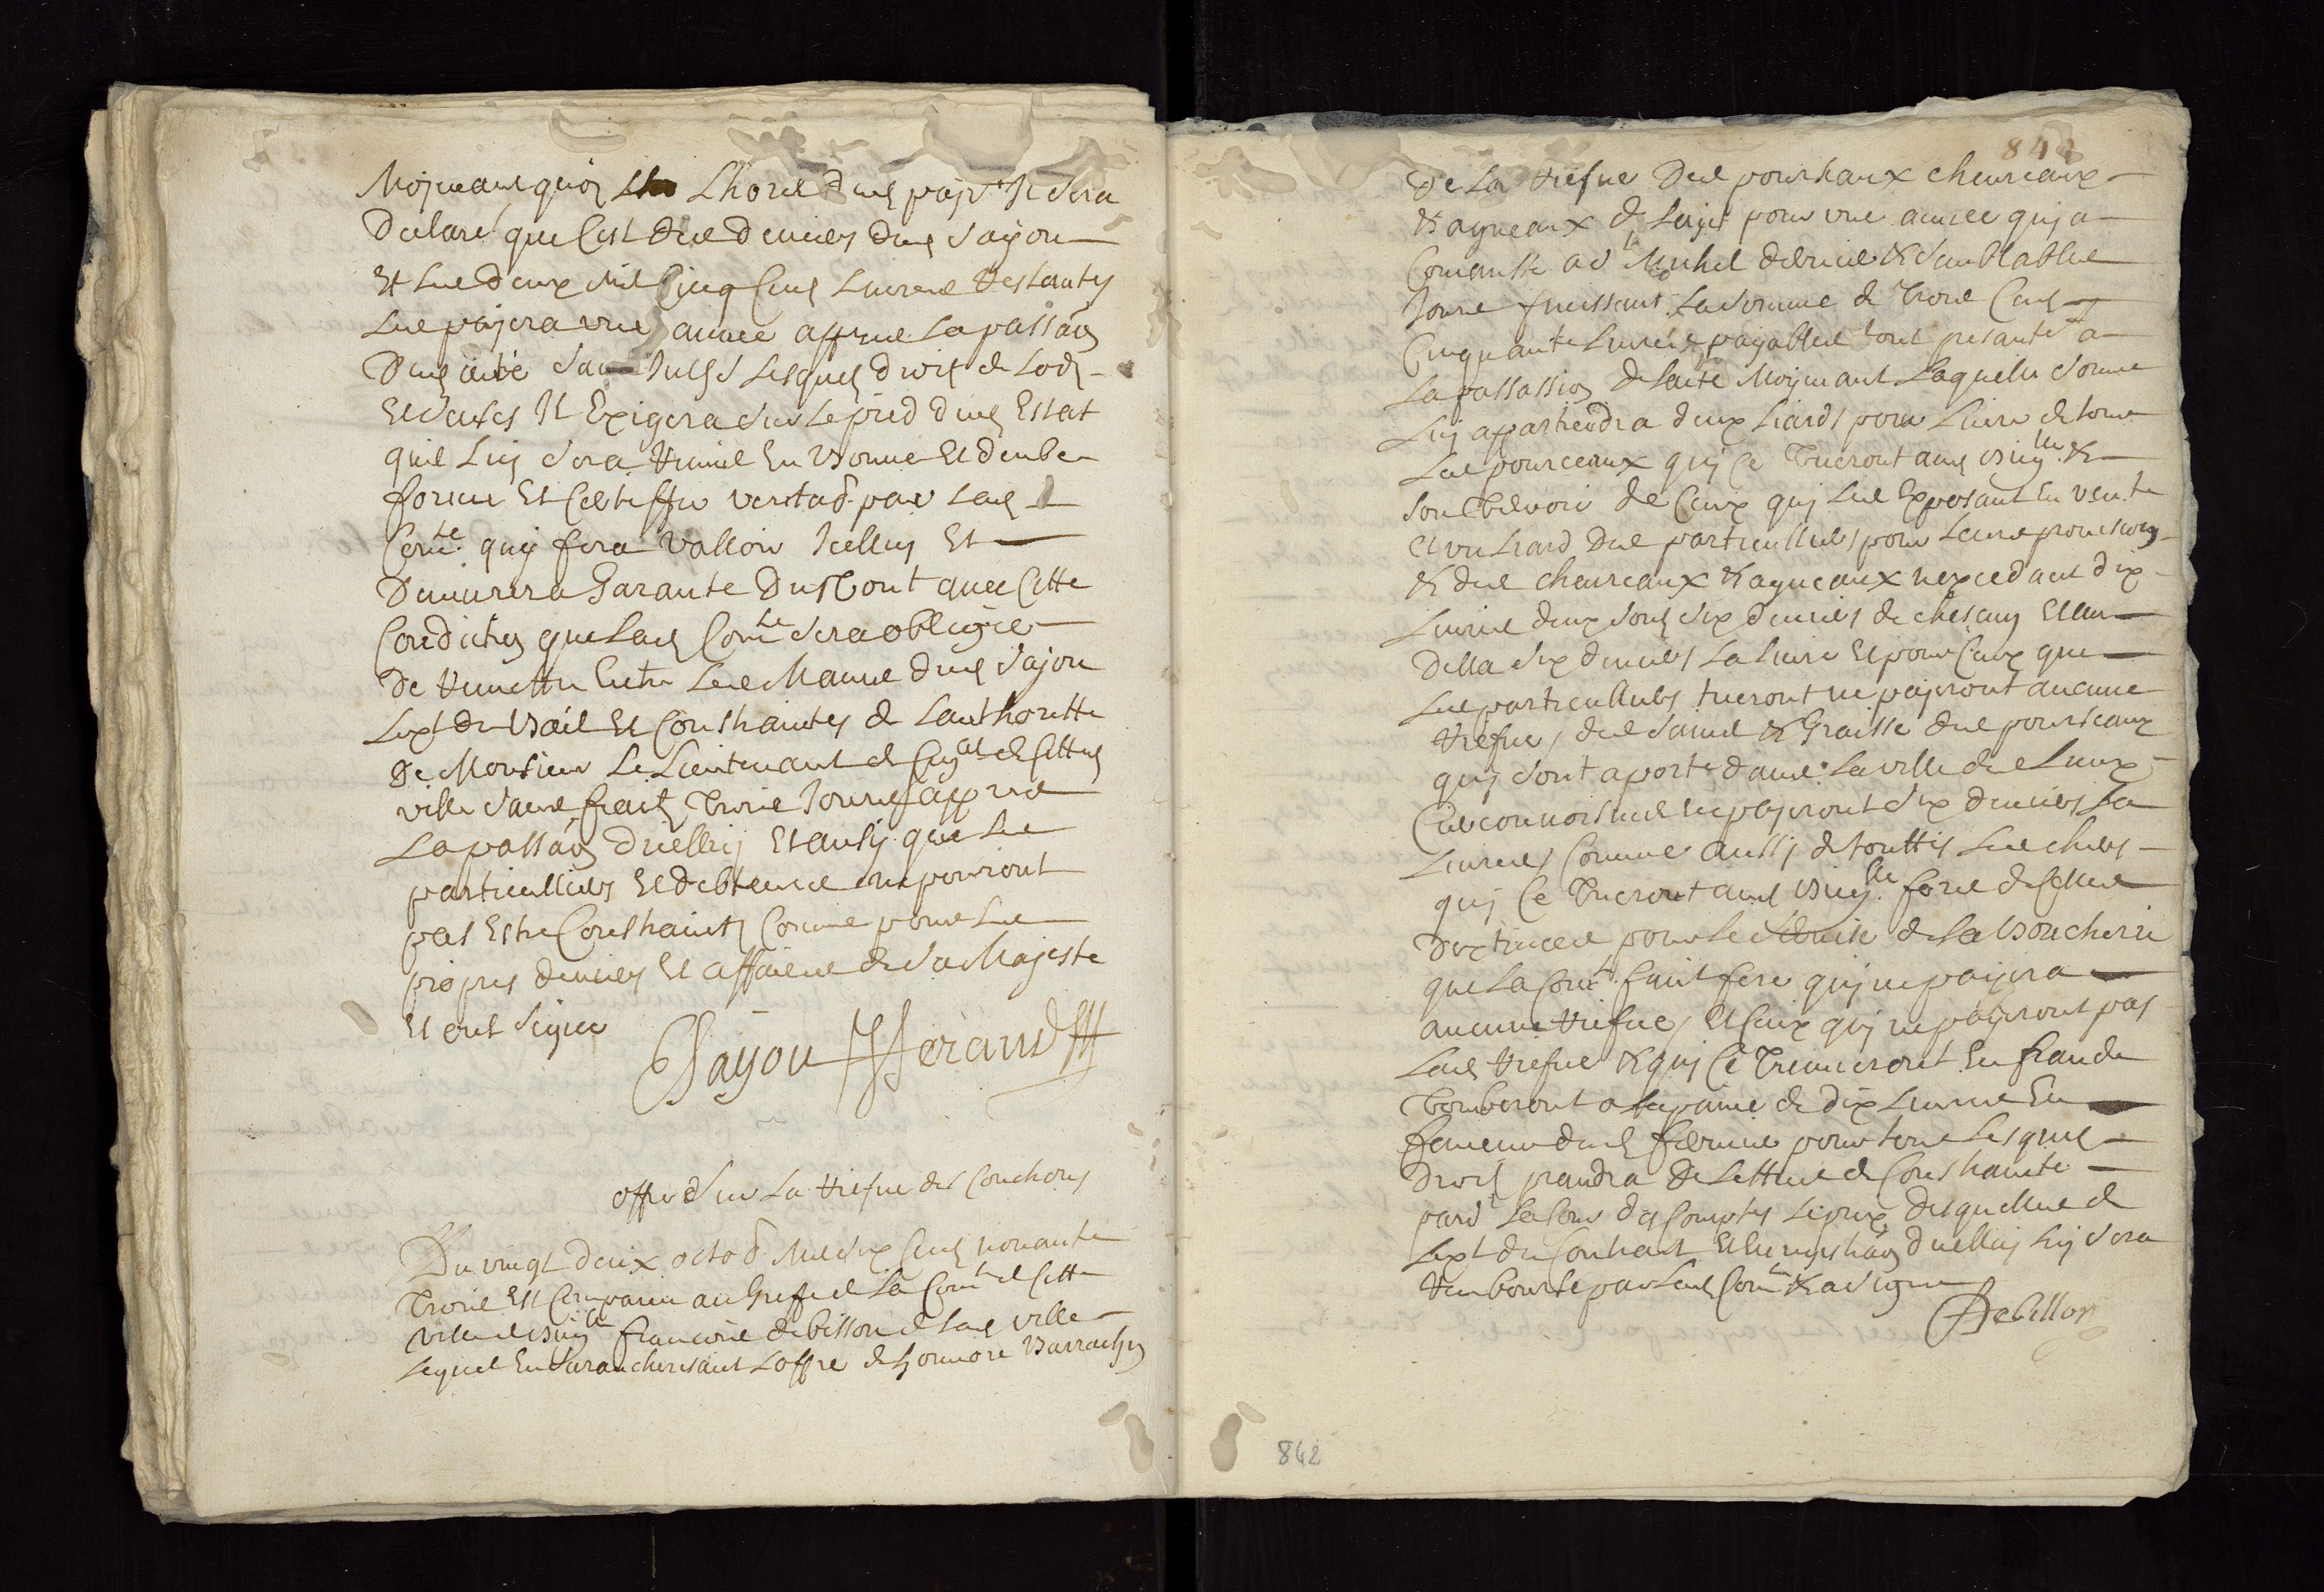 Moÿneant quoÿ Lhors dud paÿt Il sera
Declaré que Cest des deniers dud Sayou
Et les deux mil Cinq Cens Livres restantes
Les payera une année appres la passaon
Dud acte sans Intt Lesquels droit de Lods
Et ventes Il Exigera sur le pied dud Estat
quil Luy sera remis En bonne Et deube
forme Et Certiffié par Lad
Comte quy fera valloir Icelluy Et
Demurera Garante Du Tout avec Cette
Condition que Lad Comte sera obligée
De remettre Entre Les Mains dud Sayou
Lext du Bail Et Contraintes de Lauthoritte
De Monsieur Le Lieutenant de Cette
ville sans frais Trois Jours appres
La passaon dicelluy Et ausy que Les
particulliers Et debteurs ne pourront
pas Estre Contraints Comme pour Les
propres deniers Et affaires de Sa Majeste
Et ont signé
Sayou Heraud
offre sur La resve des Couchons
Du vingt deux octob Mil six Cens nonante
Trois Est Comparu au Greffe de La Comte de Cette
Ville de francois debillon de lad ville
Lequel En Surancherisant Loffre de honnore Barrachin
842
De La resve des pourceaux chevreaux
Et agneaux de Laict pour une année quy a
Comansse a St Michel dernier Et semblable
Jour finissant La somme de Trois Cens
Cinquante Livres payables tout presante a
La passassion de lacte Moÿnant Laquelle somme
Luy apartiendra deux Liards pour Livre de tous
Les pourceaux quy Ce Tueront aud &
Son Terroir de Ceux quy Les Exposent En vente
Et un Liard des particulliers pour Leurs provisions
& des chevreaux & agneaux nexcedant dix
Livres deux sous six deniers de chescun Et au
Della six deniers La Livre Et pour Ceux que
Les particulliers tueront ne payeront aucune
resve, des & Graisse des pourceaux
quy sont aporte dans La ville de Ceux
Circonvoisins ne payeront six deniers La
Livre, Comme aussy de touttes Les chevs
quy Ce Tueront aud fors de Celles
Destinees pour Le service de La Boucherie
que La Comte fait fere quy ne payera
aucune resve, Et Ceux quy ne payeront pas
Lad resve & quy Ce Treuveront En fraude
Tomberont a La paine de dix Livres En
faveur dud fermier pour tous Lesquels
Droits prandra De Lettres de Contrainte
pard La Cour des Comptes Le prix desquelles &
Lext du Contract Et dicelluy Luy sera
Rembourse par Lad Comte & a signe
Debillon
842